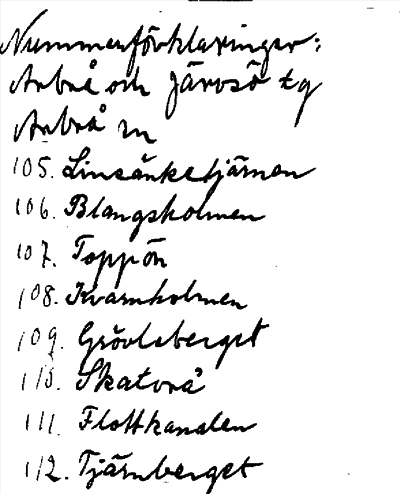 Nummerförklaringar:
Arbrå och Järvsö tg
Arbrå sn
105. Linsänketjärnen
106. Blangsholmen
107. Toppön
108. Kvarnholmen
109. Grövlsberget
110. Skatvrå
111. Flottkanalen
112. Tjärnberget